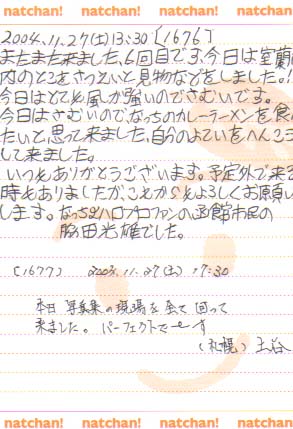 natchan! natchan! natchan! natchan!
2004.11.27(土)13:30 〔1676〕
またまた来ました、6回目です、今日は室蘭
内のとこをさっといと見物などをしました。!
今日はとても風が強いのでさむいです。
今日はさむいので、なっちのカレーラーメンを食べ
たいと思って来ました、自分のよていをへんこう
して来ました。
いつもありがとうございます。予定外で来る
時もありましたが、これからもよろしくお願い
します。なっち&ハロプロファンの函館市民の
脇田光雄でした。
〔1677〕 2004.11.27(土) 17:30
本日 写真集の現場を全て回って
来ました。パーフェクトでーす
(札幌) 土谷
natchan! natchan! natchan! natchan!